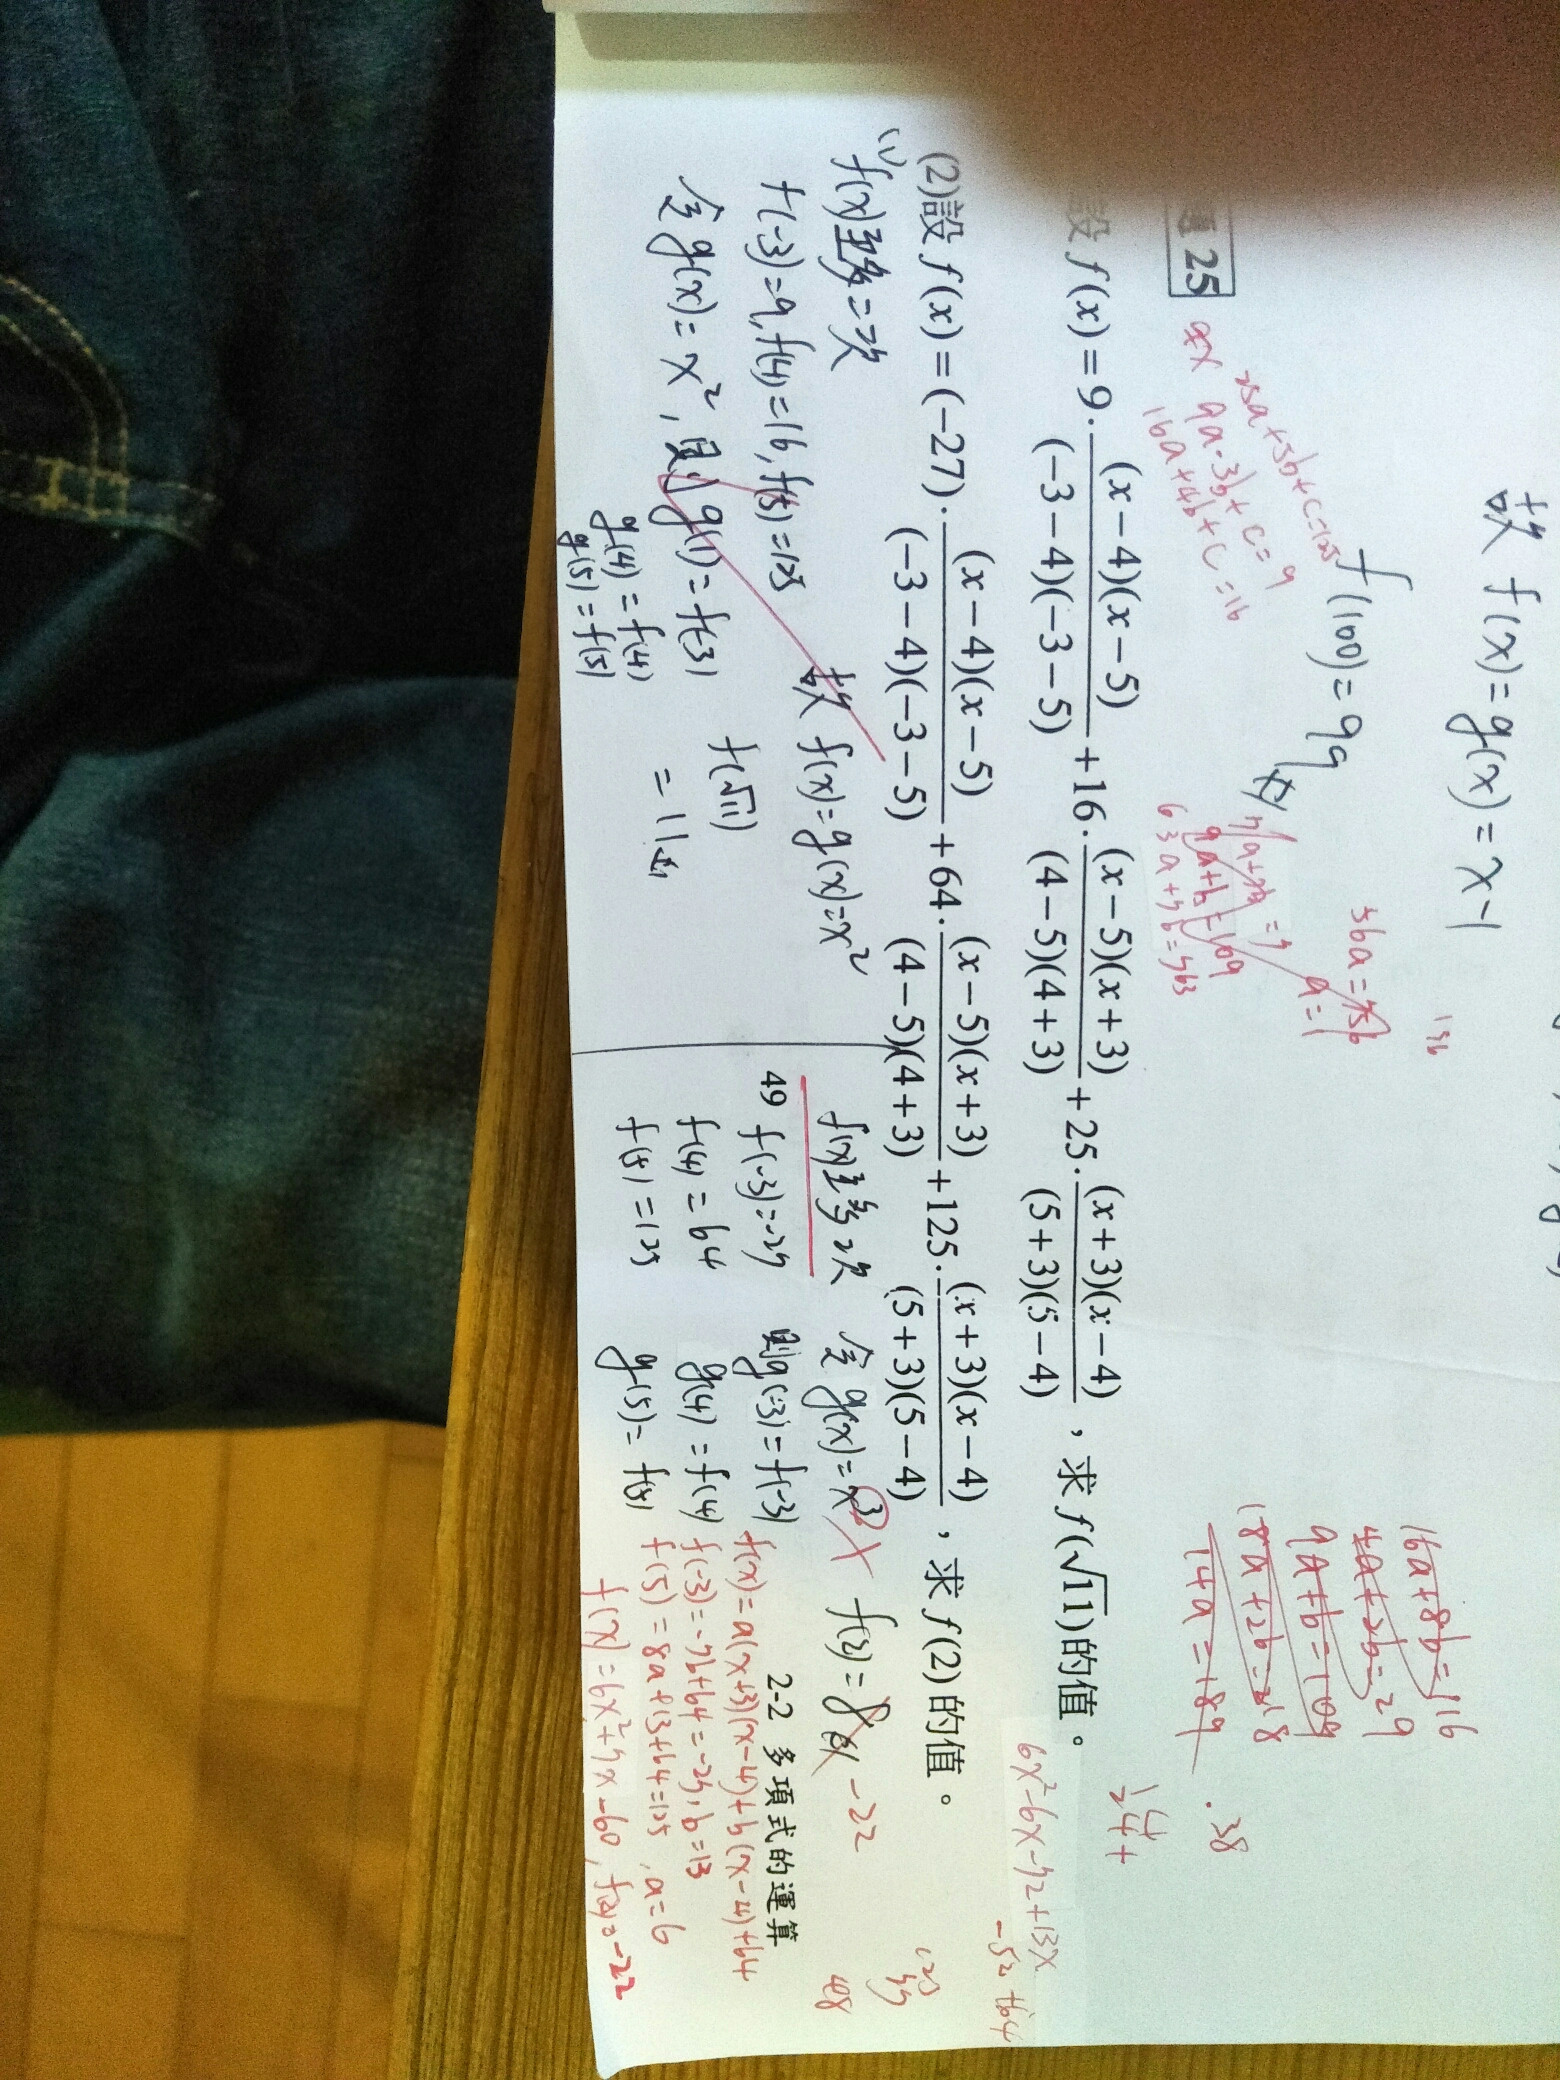 故 f(x)=g(x)=x-1
f(100)=99
36a=756
a=1
25a+5b+c=125
9a-3b+c=9
16a+4b+c=16
9a+b=109
63a+7b=763
16a+8b=116
4a+2b=29
9a+b=109
18a+2b=218
14a=189
25
設 f(x)=9·\frac{(x-4)(x-5)}{(-3-4)(-3-5)}+16·\frac{(x-5)(x+3)}{(4-5)(4+3)}+25·\frac{(x+3)(x-4)}{(5+3)(5-4)},求 f(√11)的值。
6x²-6x-72+13x
-52+64
(2)設 f(x)=(-27)·\frac{(x-4)(x-5)}{(-3-4)(-3-5)}+64·\frac{(x-5)(x+3)}{(4-5)(4+3)}+125·\frac{(x+3)(x-4)}{(5+3)(5-4)},求 f(2)的值。
(1)
f(x)至多二次
f(-3)=9, f(4)=16, f(5)=125
令 g(x)=x²,則 g(1)=f(-3)
g(4)=f(4)
g(5)=f(5)
故 f(x)=g(x)=x²
f(√11)
=11
f(x)至多2次
f(-3)=-27
f(4)=64
f(5)=125
令 g(x)=x³
則g(-3)=f(-3)
g(4)=f(4)
g(5)=f(5)
f(2)=8 -22
49
2-2 多項式的運算
f(x)=a(x+3)(x-4)+b(x-4)+64
f(-3)=-7b+64=-27, b=13
f(5)=8a+13+64=125, a=6
f(x)=6x²+7x-60, f(2)=-22